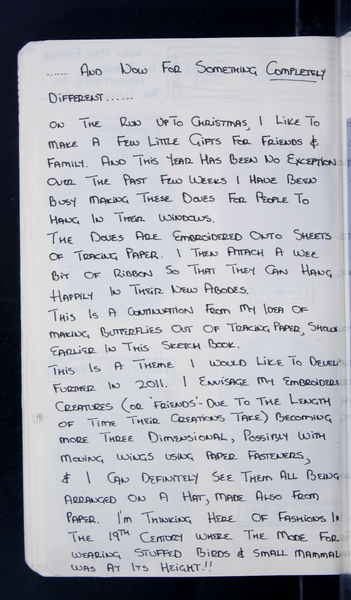 ...... And Now For Something Completely
Different......
On The Run Up To Christmas, I Like To
Make A Few Little Gifts For Friends &
Family. And This Year Has Been No Exception
Over The Past Few Weeks I Have Been
Busy Making These Doves For People To
Hang In Their Windows.
The Doves Are Embroidered Onto Sheets
Of Tracing Paper. I Then Attach A Wee
Bit Of Ribbon So That They Can Hang
Happily In Their New Abodes.
This Is A Continuation From My Idea Of
Making Butterflies Out Of Tracing Paper,
Earlier In This Sketch Book.
This Is A Theme I Would Like To
Further In 2011. I Envisage My
Creatures (Or 'Friends' - Due To The Length
Of Time Their Creations Take) Becoming
More Three Dimensional, Possibly With
Moving Wings Using Paper Fasteners,
& I Can Definitely See Them All Being
Arranged On A Hat, Made Also From
Paper. I'm Thinking Here Of Fashions In
The 19th Century Where The Mode For
Wearing Stuffed Birds & Small Mammal
Was At Its Height!!